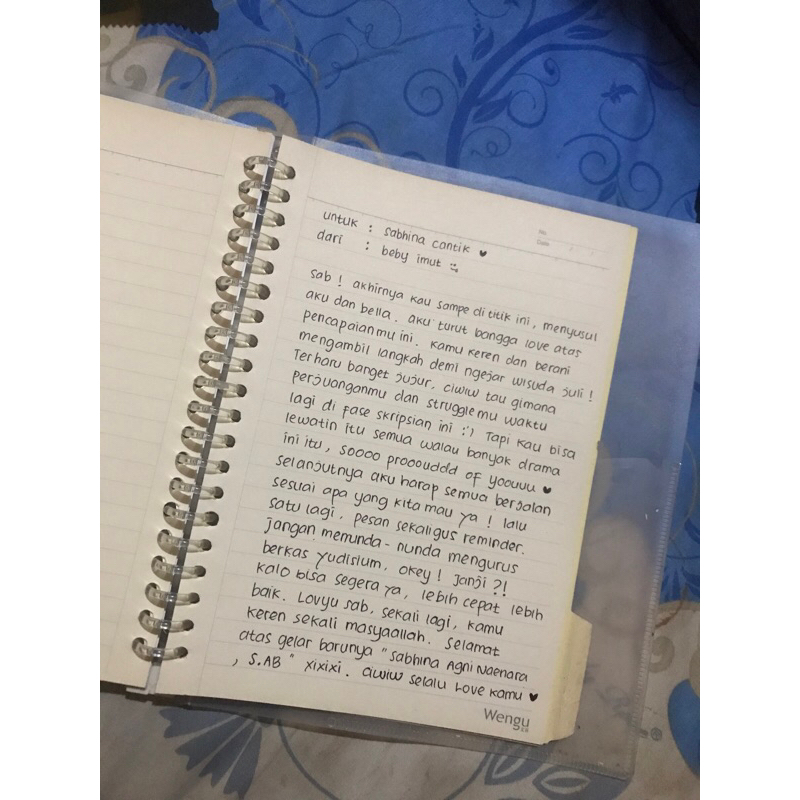 No.
Date
untuk : sabhina cantik ♥
dari : beby imut
sab ! akhirnya kau sampe di titik ini, menyusul
aku dan bella. aku turut bangga love atas
pencapaianmu ini. kamu keren dan berani
mengambil langkah demi ngejar wisuda juli !
Terharu banget jujur. ciwiw tau gimana
perjuanganmu dan strugglemu waktu
lagi di fase skripsian ini :') Tapi kau bisa
lewatin itu semua walau banyak drama
ini itu, soooo prooouddd of yoouuu ♥
selanjutnya aku harap semua berjalan
sesuai apa yang kita mau ya ! lalu
satu lagi. pesan sekaligus reminder.
jangan menunda - nunda mengurus
berkas yudisium, okey ! janji ?!
kalo bisa segera ya, lebih cepat lebih
baik. Lovyu sab, sekali lagi, kamu
keren sekali masyaallah. selamat
atas gelar barunya "sabhina Agni Naenara
, S.AB " xixixi. ciwiw selalu love kamu ♥
Wengu